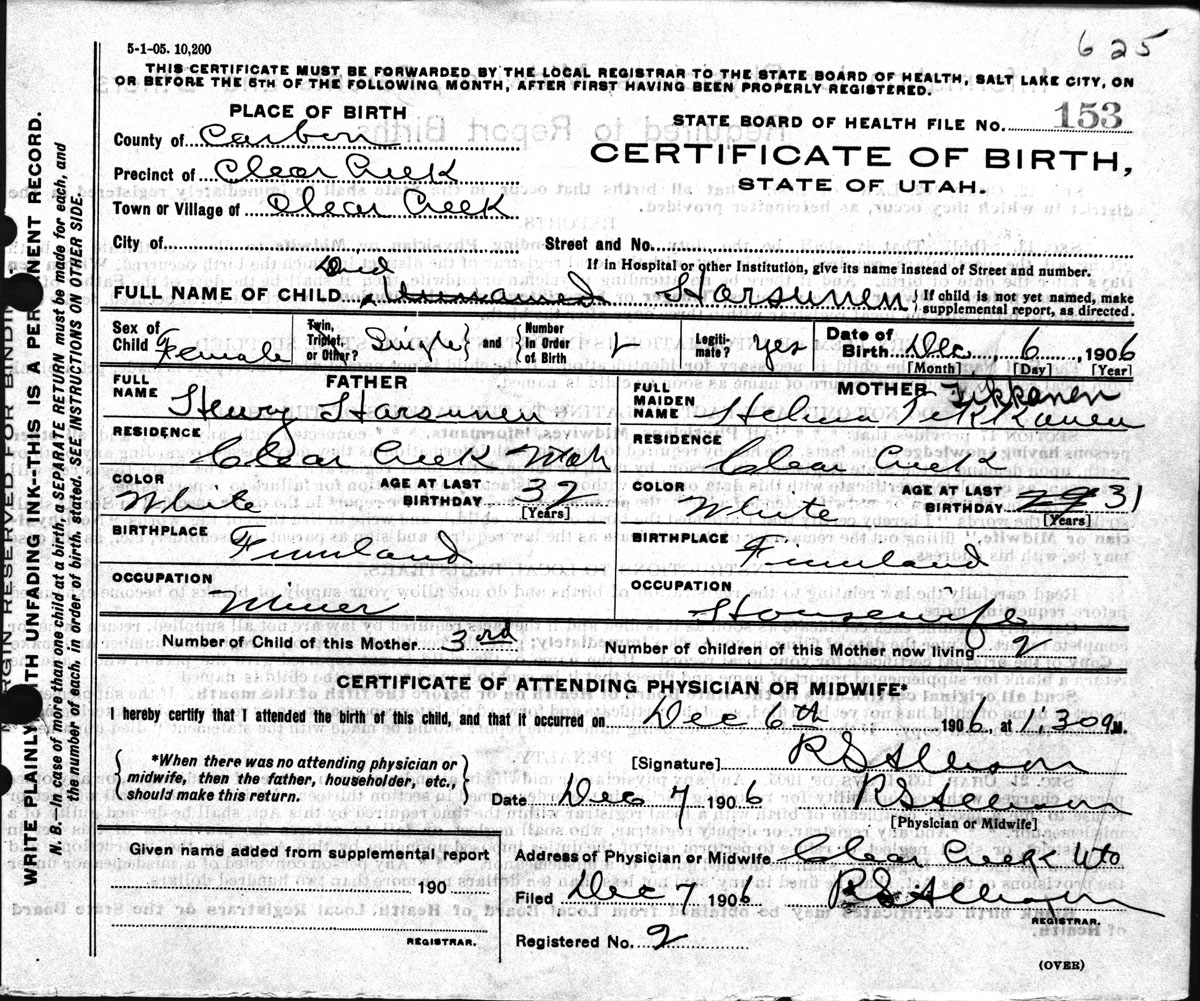 625
5-1-05. 10,200
THIS CERTIFICATE MUST BE FORWARDED BY THE LOCAL REGISTRAR TO THE STATE BOARD OF HEALTH, SALT LAKE CITY, ON
OR BEFORE THE 5TH OF THE FOLLOWING MONTH, AFTER FIRST HAVING BEEN PROPERLY REGISTERED.
PLACE OF BIRTH
County of Carbon
Precinct of Clear Creek
Town or Village of Clear Creek
STATE BOARD OF HEALTH FILE No. 153
CERTIFICATE OF BIRTH,
STATE OF UTAH.
City of Street and No.
If in Hospital or other Institution, give its name instead of Street and number.
FULL NAME OF CHILD Unnamed Harsunen } If child is not yet named, make
supplemental report, as directed.
Sex of Child Female
Twin, Triplet, or Other? Single and Number in Order of Birth
Legitimate? yes
Date of Birth Dec, 6, 1906
[Month] [Day] [Year]
FATHER
FULL NAME Henry Harsunen
RESIDENCE Clear Creek Utah
COLOR White AGE AT LAST BIRTHDAY 32 [Years]
BIRTHPLACE Finnland
OCCUPATION Miner
MOTHER Tikkanen
FULL MAIDEN NAME Helma
RESIDENCE Clear Creek
COLOR White AGE AT LAST BIRTHDAY 29 31 [Years]
BIRTHPLACE Finnland
OCCUPATION Housewife
Number of Child of this Mother 3rd Number of children of this Mother now living 2
CERTIFICATE OF ATTENDING PHYSICIAN OR MIDWIFE*
I hereby certify that I attended the birth of this child, and that it occurred on Dec 6th 1906, at 1:30 M.
{ *When there was no attending physician or
midwife, then the father, householder, etc.,
should make this return. }
[Signature]
Date Dec 7 1906
[Physician or Midwife]
Given name added from supplemental report
190
REGISTRAR.
Address of Physician or Midwife Clear Creek
Filed Dec 7 1906
REGISTRAR.
Registered No. 2
(OVER)
MARGIN RESERVED FOR BINDING
WRITE PLAINLY WITH UNFADING INK--THIS IS A PERMANENT RECORD.
N. B.—In case of more than one child at a birth, a SEPARATE RETURN must be made for each, and
the number of each, in order of birth, stated. SEE INSTRUCTIONS ON OTHER SIDE.